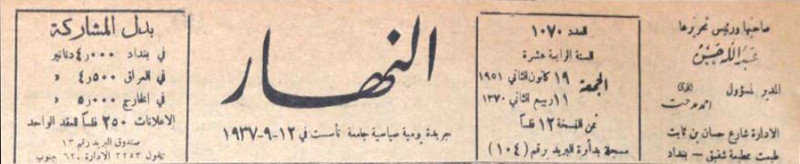 صاحبها ورئيس تحريرها
عبد الله حسن
المدير المسؤول
احمد مدحت
الادارة شارع حسان بن ثابت
طبعت بمطبعة شفيق - بغداد
العدد ١٠٧٠
السنة الرابعة عشرة
الجمعة
١٩ كانون الثاني ١٩٥١
١١ ربيع الثاني ١٣٧٠
ثمن النسخة ١٢ فلساً
مسجلة بدائرة البريد برقم (١٠٤)
النهار
جريدة يومية سياسية جامعة تأسست في ١٢-٩-١٩٣٧
بدل المشاركة
في بغداد ٤٫٠٠٠ دنانير
في العراق ٤٫٥٠٠ »
في الخارج ٥٫٠٠٠ »
الاعلانات ٢٥٠ فلساً للعقد الواحد
صندوق البريد رقم ١٣
تلفون ٢٢٥٣ الادارة ٦٢٠ جنوب